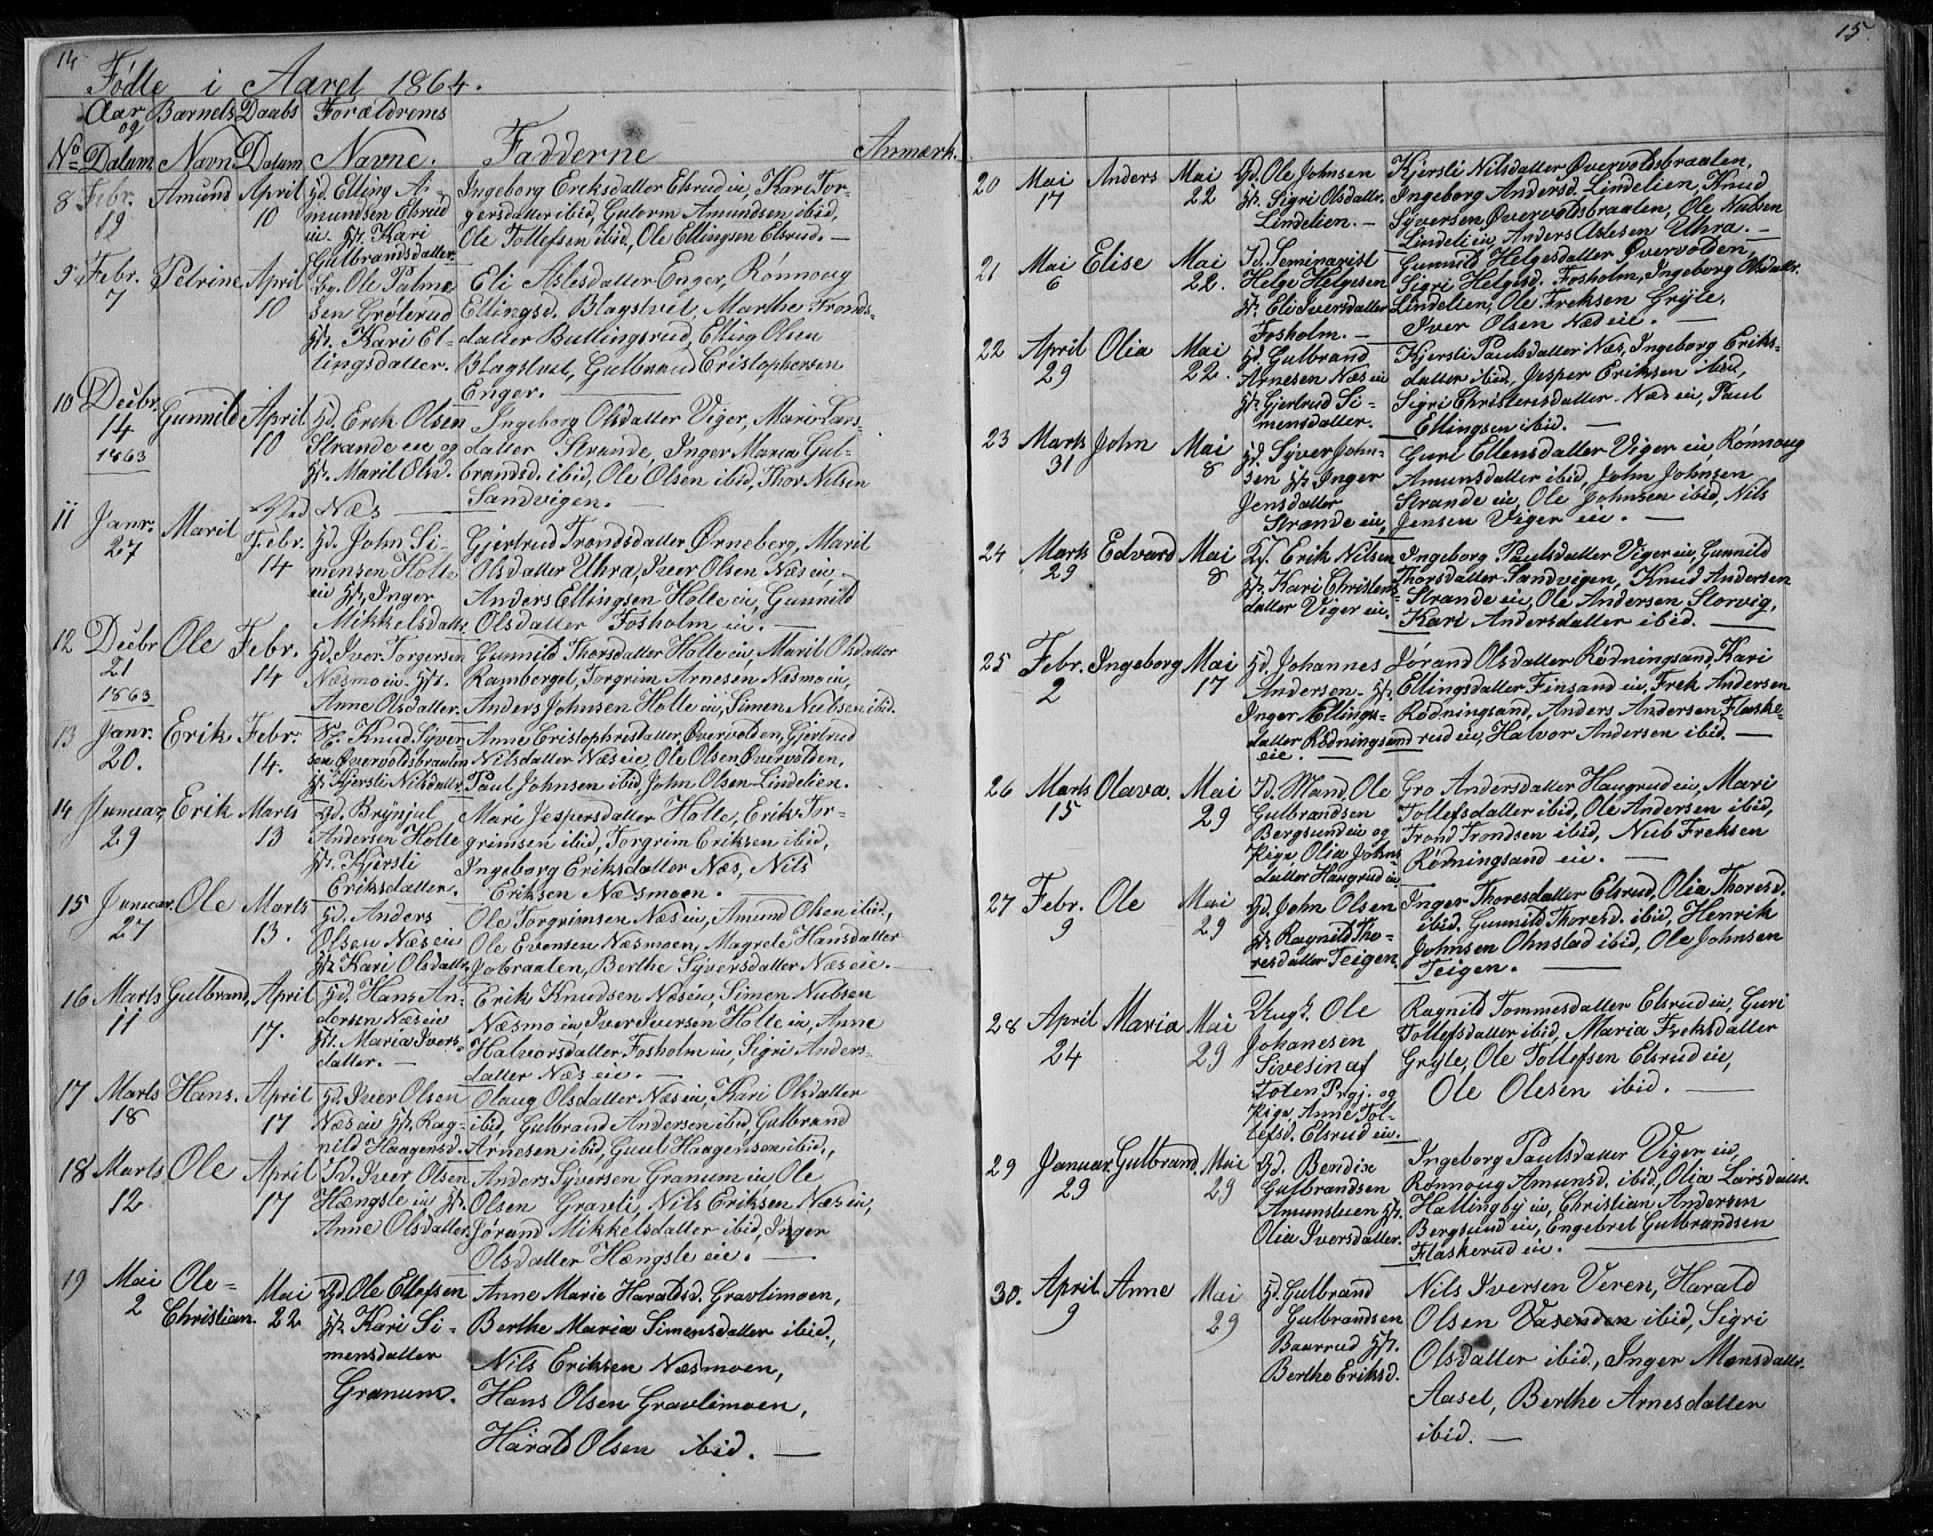 14
Födte i Aaret 1864.
Aar og Datum
No
Barnets Navn
Daabs Datum
Forældrenes Navne.
Fadderne
Anmærk.
8 Febr. 19 Amund April 10
Gd. Elling Amundsen Elsrud eie Hst. Kari Gulbrandsdatter.
Ingeborg Eriksdatter Elsrud eie, Kari Tor-
gersdatter ibid, Gutorm Amundsen ibid,
Ole Tollefsen ibid, Ole Ellingsen Elsrud.
9 Febr. 7 Petrine April 10
Ole Palme-
sen Grøterud
Kari El-
lingsdatter.
Eli Aslesdatter Enger, Rönnoug
Ellingsd. Blagstvet, Marthe Tronds-
datter Bullingsrud, Elling Olsen
Blagstvet, Gulbrand Cristophersen
Enger.
10 Decbr. 14 1863 Gunnild April 10
Erik Olsen
Strande eie og
Marit Olsd.
Ingeborg Olsdatter Viger, Mari Lars-
datter Strande, Inger Maria Gul-
brandsd. ibid, Ole Olsen ibid, Thor Nilsen
Sandvigen.
Ved Næs
11 Janr. 27 Marit Febr. 14
John Si-
mensen Holte
eie Inger
Mikkelsdatter
Gjertrud Trondsdatter Ørneberg, Marit
Olsdatter Uhra, Iver Olsen Næs eie,
Anders Ellingsen Holte eie, Gunnild
Olsdatter Fosholm eie.
12 Decbr 21 1863 Ole Febr. 14
Iver Torgersen
Næsmo eie
Anne Olsdatter.
Gunnild Thorsdatter Holte eie, Marit Olsdatter
Ramberget, Torgrim Arnesen Næsmo eie,
Anders Johnsen Holte eie, Simen Nubsen ibid.
13 Janr. 20. Erik Febr. 14.
Knud Syver-
sen Øvervoldsbraaten
Kjersti Nilsdatter.
Anne Cristophersdatter, Øvervolden, Gjertrud
Nilsdatter Næs eie, Ole Olsen Øvervolden,
Paul Johnsen ibid, John Olsen Lindelien.
14 Januar 29 Erik Marts 13
Brynjul
Andersen Holte
Kjersti
Eriksdatter.
Mari Jespersdatter Holte, Erik Tor-
grimsen ibid, Torgrim Eriksen ibid,
Ingeborg Eriksdatter Næs, Nils
Eriksen Næsmoen.
15 Januar. 27 Ole Marts 13.
Anders
Olsen Næs eie
Kari Olsdatter
Ole Torgrimsen Næs eie, Amund Olsen ibid.,
Ole Evensen Næsmoen, Magrete Hansdatter
Jobraaten, Berthe Syversdatter Næs eie.
16 Marts 11 Gulbrand, April 17.
Hans An-
dersen Næs eie
Maria Ivers-
datter.
Erik Knudsen Næs eie, Simen Nubsen
Næsmo eie, Iver Iversen Holte eie, Anne
Halvorsdatter Fosholm eie, Sigri Anders-
datter Næs eie.
17 Marts 18 Hans. April 17
Iver Olsen
Næs eie Rag-
nild Haagensd.
Olaug Olsdatter Næs eie, Kari Olsdatter
ibid, Gulbrand Andersen ibid, Gulbrand
Arnesen ibid, Guul Haagensen ibid.,
18 Marts 12 Ole April 17
Iver Olsen
Hængsle eie
Anne Olsdatter.
Anders Syversen Granum eie Ole
Olsen Gravli, Nils Eriksen Næs eie,
Jörand Mikkelsdatter ibid, Inger
Olsdatter Hængsle eie.
19 Mai 2 Ole-
Christian. Mai 22
Ole Ellefsen
Kari Si-
mensdatter
Granum.
Anne Marie Haraldsd. Gravlimoen,
Berthe Maria Simensdatter ibid.,
Nils Eriksen Næsmoen,
Hans Olsen Gravlimoen,
Harald Olsen ibid.
15.
20 Mai 17 Anders Mai 22
Ole Johnsen
Sigri Olsdatter.
Lindelien.
Kjersti Nilsdatter Øvervoldsbraaten,
Ingeborg Andersd. Lindelien, Knud
Syversen Øvervoldsbraaten, Ole Nubsen
Lindeli eie, Anders Aslesen Uhra.
21 Mai 6 Elise Mai 22.
Seminarist
Helge Helgesen
Eli Iversdatter
Fosholm.
Gunnild Helgesdatter Øvervolden,
Sigri Helgesd. Fosholm, Ingeborg Olsdatter
Lindelien, Ole Freksen Gryte,
Iver Olsen Næs eie.
22 April 29 Olia Mai 22.
Gulbrand
Arnesen Næs eie
Gjertrud Si-
mensdatter.
Kjersti Paulsdatter Næs, Ingeborg Eriks-
datter ibid, Jesper Eriksen ibid,
Sigri Christensdatter Næs eie, Paul
Ellingsen ibid.
23 Marts 31 John Mai 8
Syver John-
sen Inger
Jensdatter
Strande eie,
Guri Ellensdatter Viger eie, Rönnoug
Amunsdatter ibid, John Johnsen
Strande eie, Ole Johnsen ibid, Nils
Jensen Viger eie.
24 Marts 29 Edvard Mai 8
Erik Nilsen
Kari Christens-
datter Viger eie.
Ingeborg Paulsdatter Viger eie, Gunnild
Thorsdatter Sandvigen, Knud Andersen
Strande eie, Ole Andersen Storvig,
Kari Andersdatter ibid.
25 Febr. 2 Ingeborg Mai 17
Johannes
Andersen
Inger Ellings-
datter Rödningsand
eie.
Jörand Olsdatter Rödningsand, Kari
Ellingsdatter Finsand eie, Frek Andersen
Rödningsand, Anders Andersen Flaske-
rud eie, Halvor Andersen ibid.
26 Marts 15 Olava. Mai 29
Mand, Ole
Gulbrandsen
Bergsund eie og
Pige, Olia Johns-
datter Haugrud eie
Gro Andersdatter Haugrud eie, Mari
Tollefsdatter ibid, Ole Andersen ibid,
Trond Trondsen ibid, Nub Freksen
Rödningsand eie.
27 Febr. 9 Ole Mai 29
John Olsen
Ragnild Tho-
resdatter Teigen.
Inger Thoresdatter Elsrud, Olia Thoresd.
ibid. Gunnild Thoresd. ibid, Henrik
Johnsen Ohnstad ibid, Ole Johnsen
Teigen.
28 April 24 Maria Mai 29
Ungk. Ole
Johanesen
Sivesin af
Toten Prgj. og
Pige, Anne Tol-
lefsd. Elsrud eie.
Ragnild Tommesdatter Elsrud eie, Guri
Tollefsdatter ibid, Maria Freksdatter
Gryte, Ole Tollefsen Elsrud eie,
Ole Olesen ibid.
29 Januar. 29 Gulbrand. Mai 29
Bendix
Gulbrandsen
Amunsleien
Olia Iversdatter.
Ingeborg Paulsdatter Viger eie,
Rönnoug Amunsd. ibid., Olia Larsdatter
Hallingby eie, Christian Andersen
Bergsund eie, Engebret Gulbrandsen
Flaskerud eie.
30. April 9 Anne Mai 29
Gulbrand
Gulbrandsen
Baarrud
Berthe Eriksd.
Nils Iversen Veren, Harald
Olsen Vasenden ibid, Sigri
Olsdatter ibid., Inger Monsdatter
Aaset, Berthe Arnesdatter
ibid.